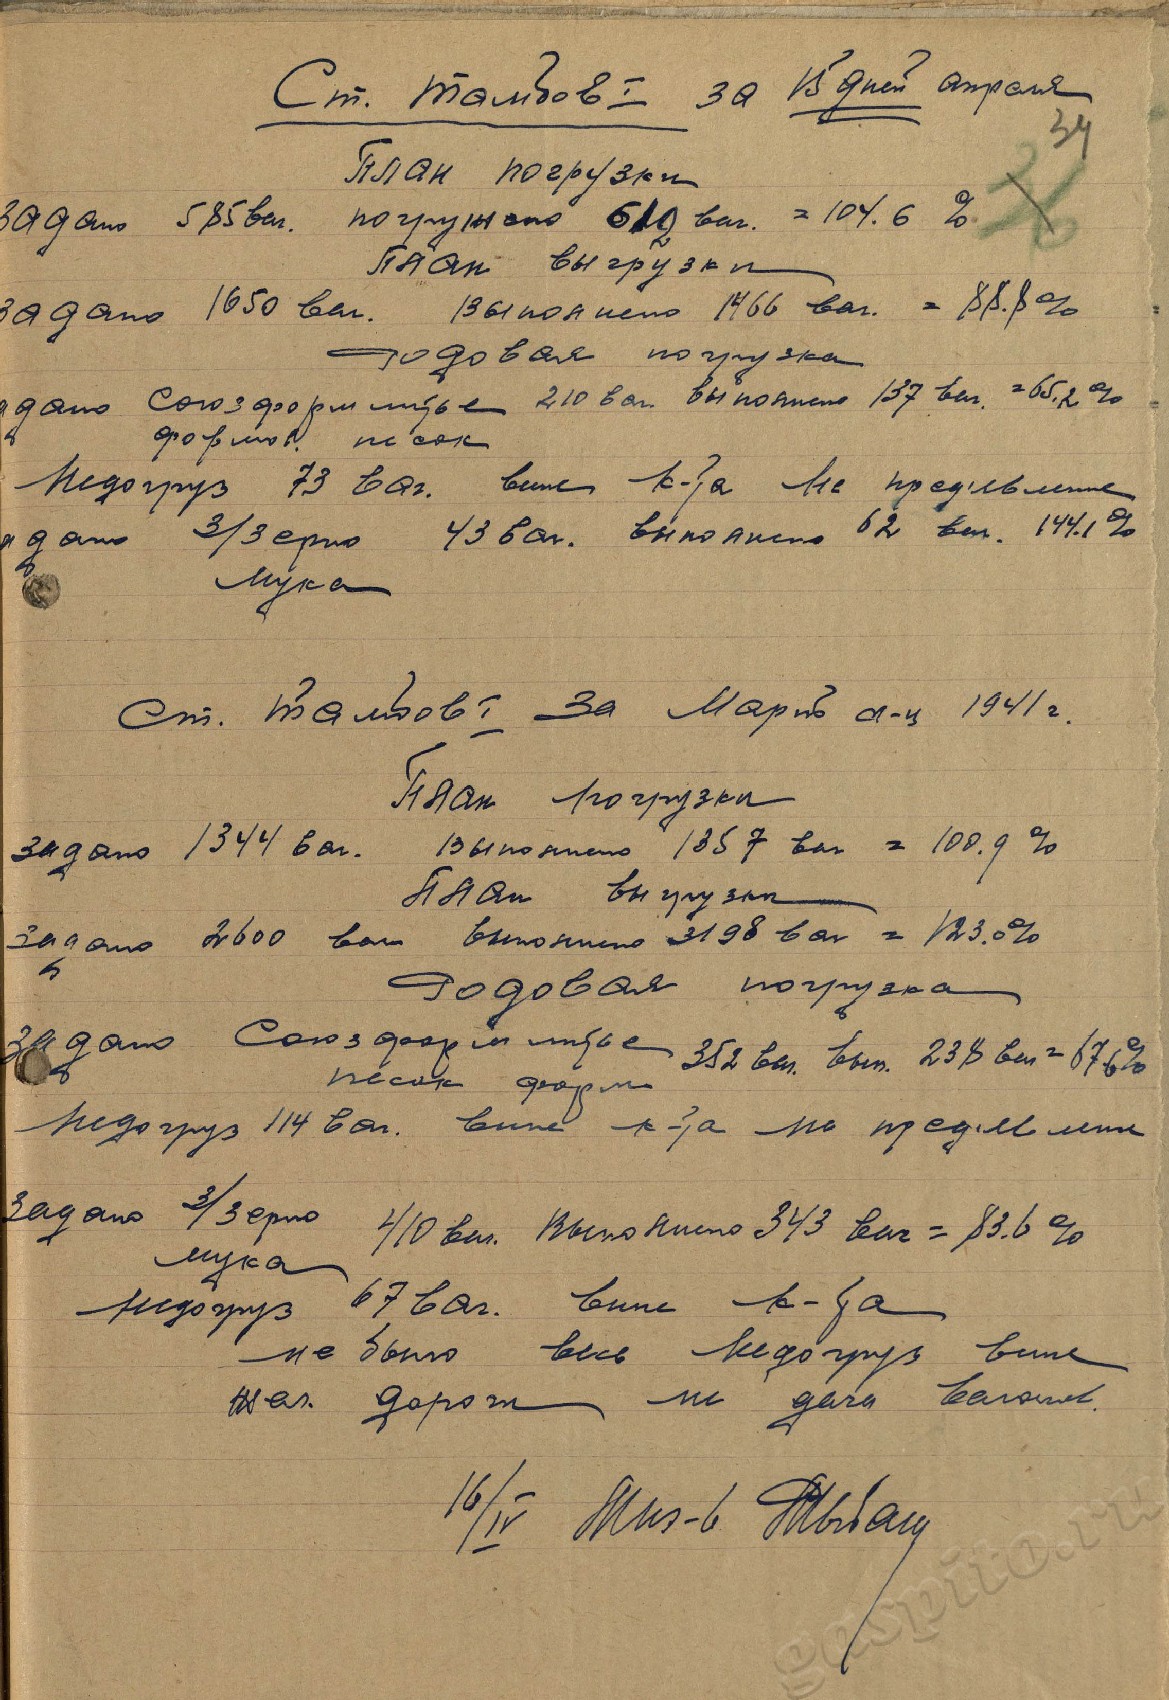 Ст. Тамбов I за 15 дней апреля
34
План погрузки
Задано 585 ваг. погружено 612 ваг. = 104.6 %
План выгрузки
Задано 1650 ваг. Выполнено 1466 ваг. = 88.8 %
Годовая погрузка
адано Союзформлитье 210 ваг. выполнено 137 ваг. = 65,2 %
формов. песок
Недогруз 73 ваг. вине к-та не предъявление
адано З/Зерно 43 ваг. выполнено 62 ваг. 144.1 %
мука
Ст. Тамбов I За Март м-ц 1941 г.
План погрузки
задано 1344 ваг. Выполнено 1357 ваг = 100.9 %
План выгрузки
Задано 2600 ваг выполнено 3198 ваг = 123.0 %
Годовая погрузка
Задано Союзформлитье 352 ваг. вып. 238 ваг = 67.6 %
песок форм
Недогруз 114 ваг. вине к-та не предъявление
Задано З/Зерно 410 ваг. Выполнено 343 ваг = 83.6 %
мука
недогруз 67 ваг. вине к-та
не было весь недогруз вине
жел. дороги не дача вагонов.
16/IV
gaspito.ru